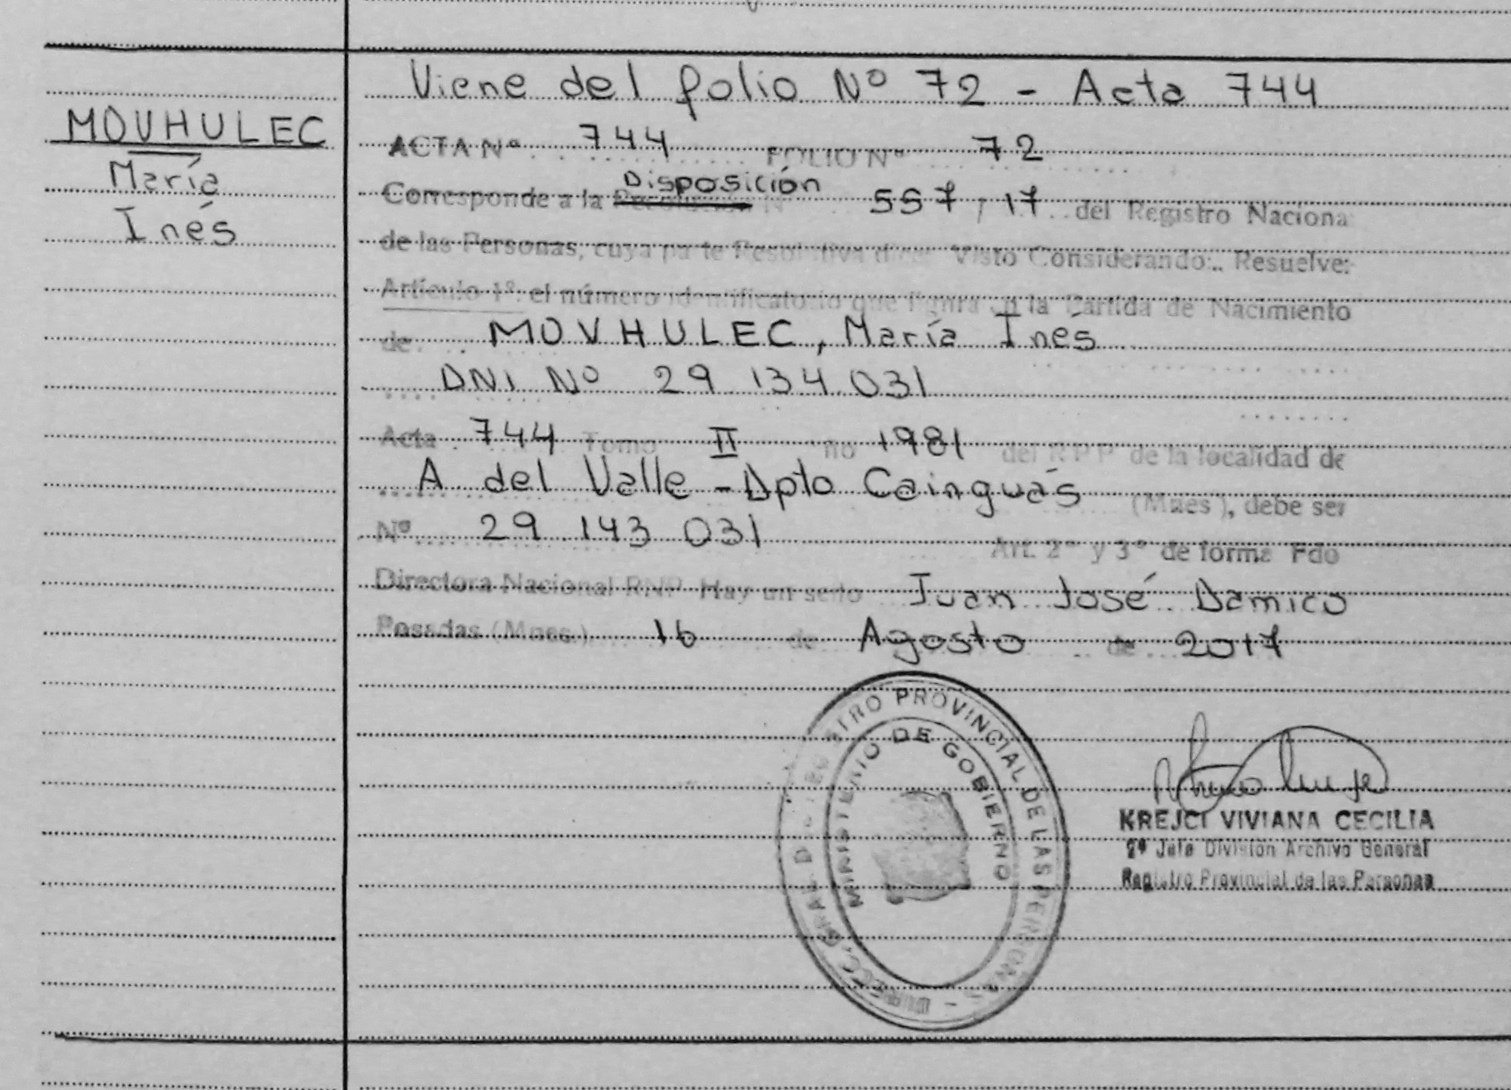 Viene del folio Nº 72 - Acta 744
MOVHULEC
María
Inés
ACTA Nº 744 FOLIO Nº 72
Corresponde a la Disposición Nº 557 / 17 del Registro Naciona
de las Personas, cuya parte Resolutiva dice: Visto Considerando:.. Resuelve:
Artículo 1º: el número identificatorio que figura en la Partida de Nacimiento
de MOVHULEC, María Inés
DNI Nº 29.134.031
Acta 744 Tomo II no 1981 del R.P.P. de la localidad de
A del Valle - Dpto Cainguás (Mnes), debe ser
Nº 29.143.031 Art. 2º y 3º de forma Fdo
Directora Nacional RNP. Hay un sello Juan José Damico
Posadas (Mnes.) 16 de Agosto de 2017
DIRECC. GRAL. REGISTRO PROVINCIAL DE LAS PERSONAS
MINISTERIO DE GOBIERNO
KREJCI VIVIANA CECILIA
2º Jefe División Archivo General
Registro Provincial de las Personas